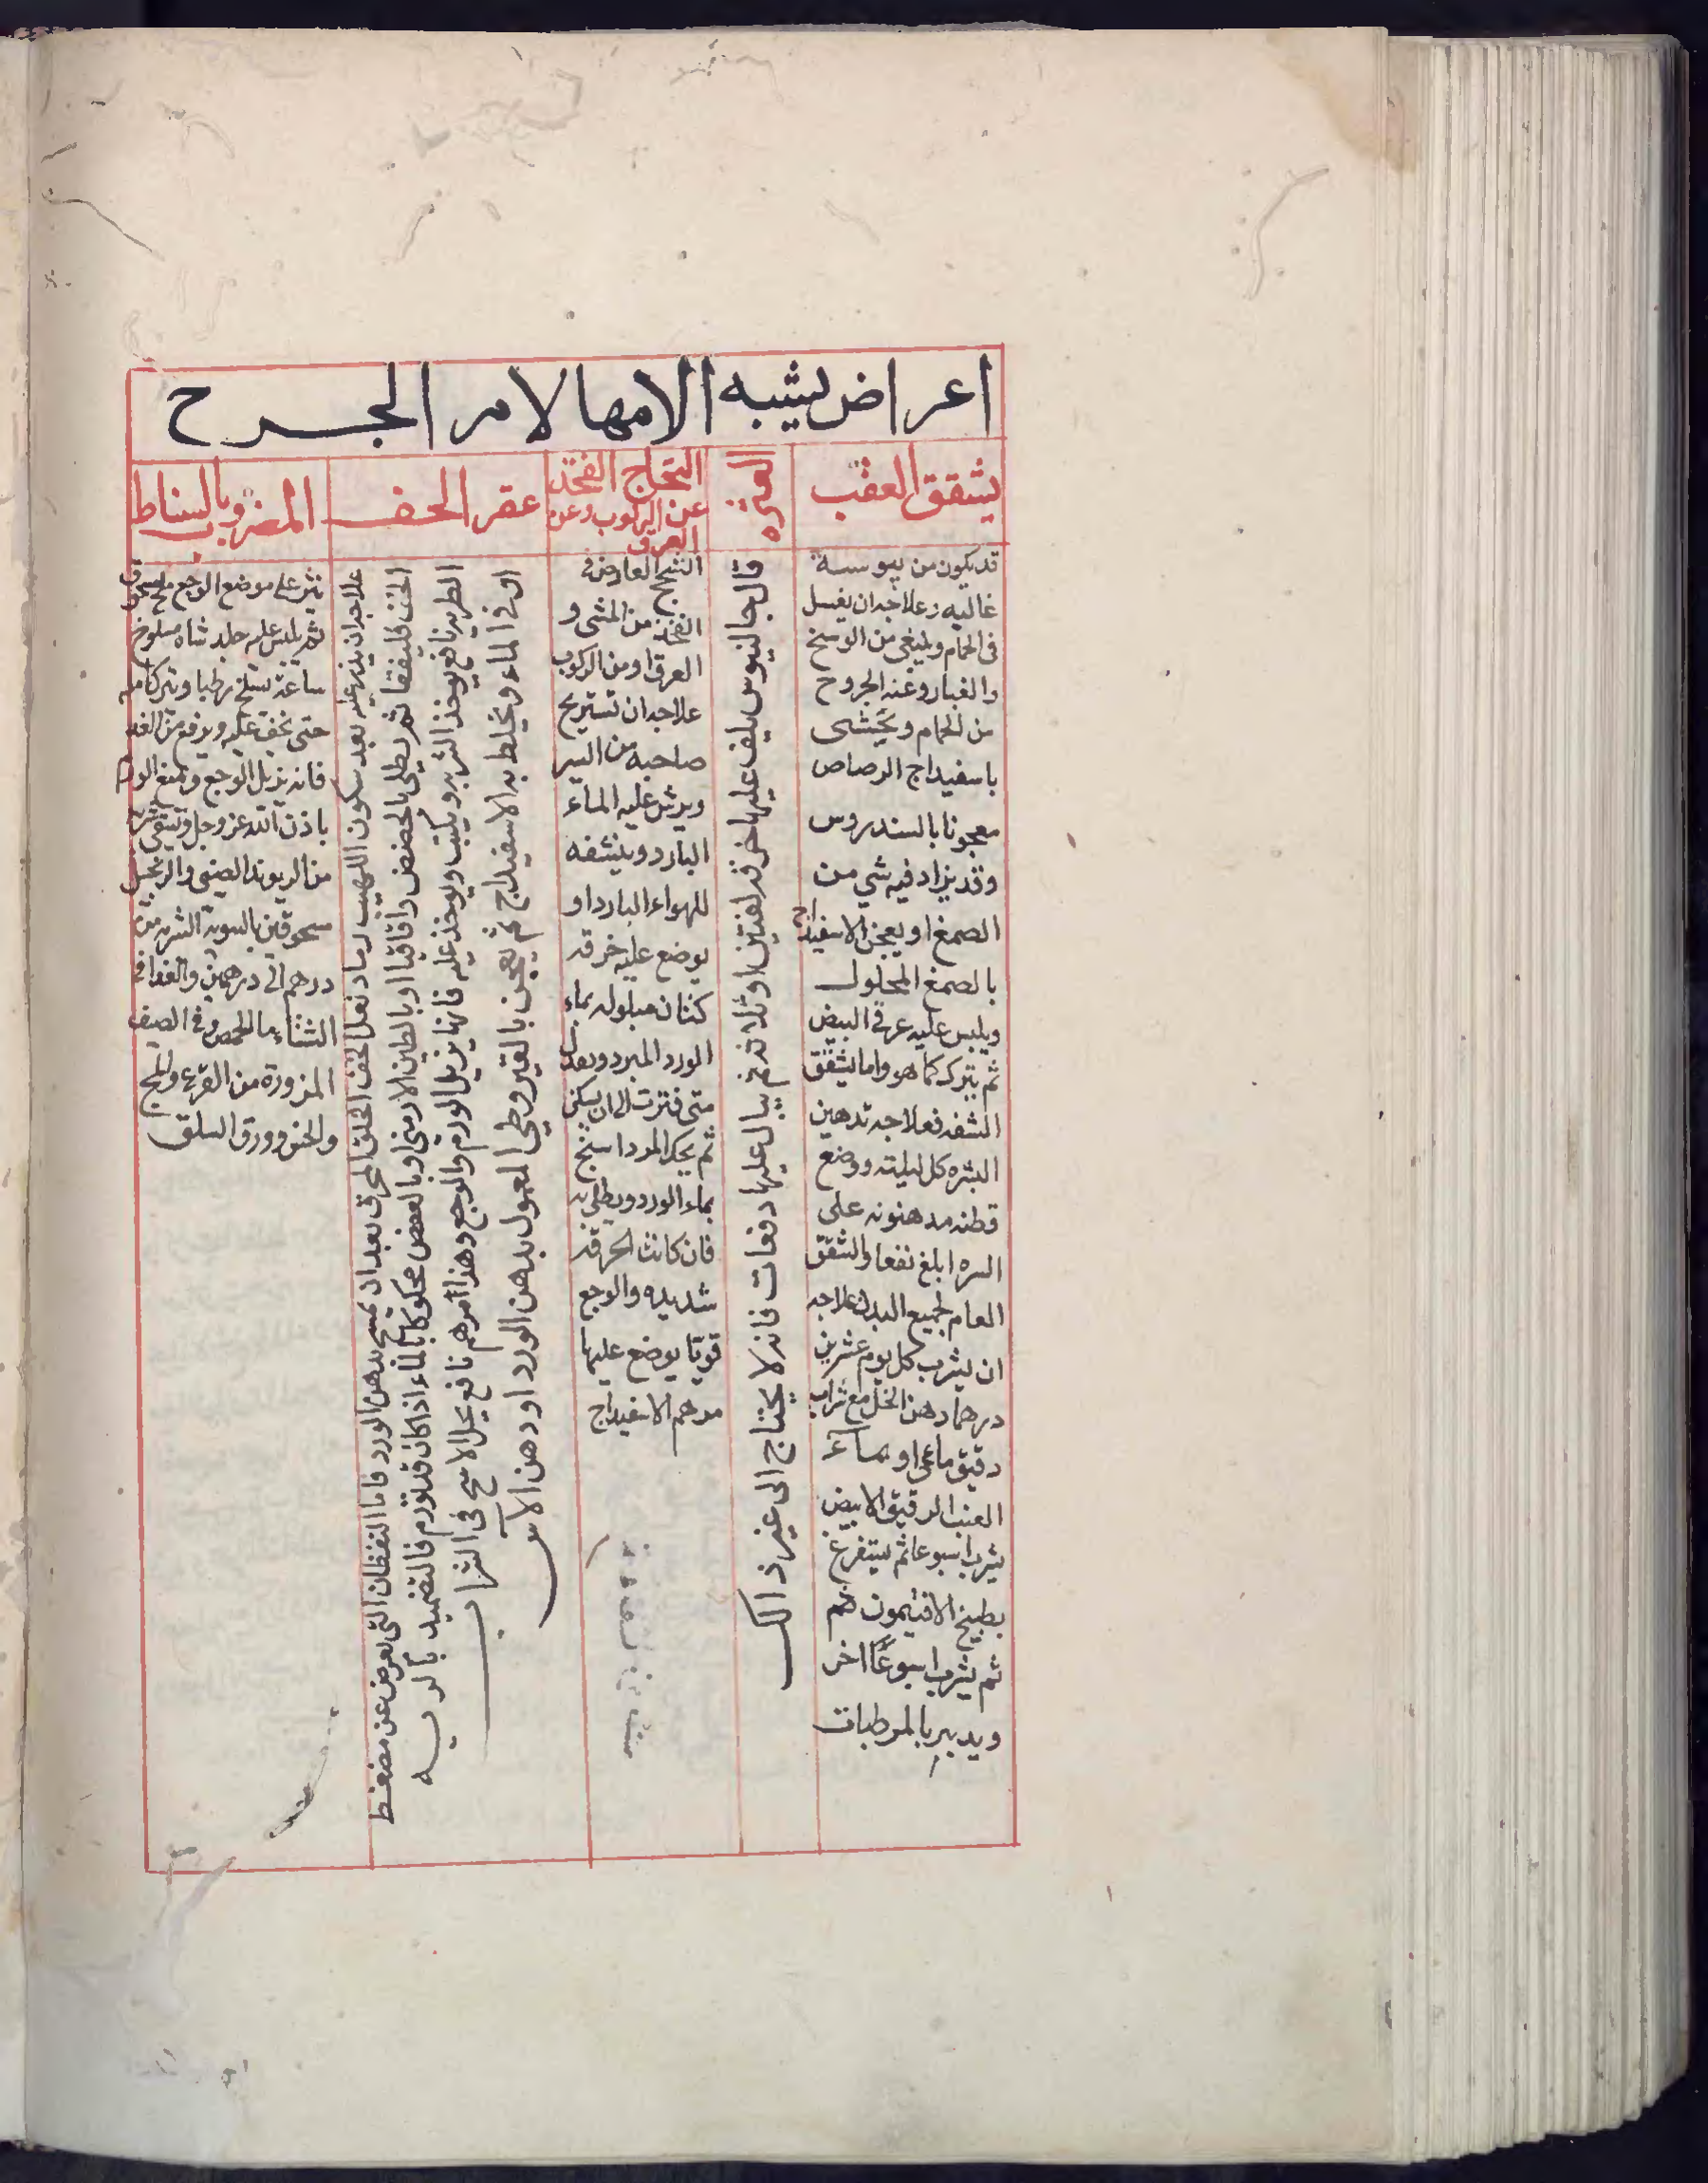 اعراض يشبه الامها لامر الجرح
يشقق العقب
العثره
انسحاج الفخذ
عن الركوب وعن
العرق
عقر الخف
المضروب بالسياط
قد يكون من يبوسة
غالبه وعلاجه ان يغسل
فى الحمام وينقى من الوسخ
والغبار وعند الخروج
من الحمام ويحشى
باسفيداج الرصاص
معجونا بالسندروس
وقد يزاد فيه شي من
الصمغ او يعجن الاسفيداج
بالصمغ المحلول
ويلبس عليه غرقي البيض
ثم يترك كما هو واما يشقق
الشفه فعلاجه تدهين
البشره كل ليلته ووضع
قطنه مدهونه على
السره ابلغ نفعا والتشقق
العام لجميع البدن علاجه
ان يشرب كل يوم عشرين
درهما دهن الخل مع شراب
رقيق ماءي او بماء
العنب الرقيق الابيض
يشرب اسبوعا ثم يستفرغ
بطبيخ الافتيمون ثم
ثم يشرب اسبوعًا اخر
ويدبر بالمرطبات
قال جالينوس يلف عليها خرقه لفتين او ثلاثه ثم يبال عليها دفعات فانه لا يحتاج الى غير ذالك
السحج العارض فى
الفخذ من المشى و
العرق او من الركوب
علاجه ان تستريح
صاحبه من السير
ويرش عليه الماء
البارد وينشفه
للهواء البارد او
يوضع عليه خرقه
كتان مبلوله بماء
الورد المبرد وبعد
متى فترت الى ان يسكن
ثم يحك المرداسنج
بماء الورد ويطلى به
فان كانت الحرقه
شديده والوجع
قويًا يوضع عليها
مرهم الاسفيداج
علاجه ان يذر عليه بعد سكون اللهيب رماد نعل الخف الخلق المحرق بعد ان يمسح بدهن الورد فاما النفظان التى يعرض عن مضغط
الخف فليفقا ثم يطلى بالحضض واقاقيا او بالطين الارمني او بالعفص محكوكا بالماء اذا كان قد تورم فالتضميد بالريه
الطريه نافع يوخذ الثربه ويكبب ويوخذ عليه فانها يزيل الورم والوجع وهذا مرهم نافع يحل الاسج فى الشراب
او فى الماء ويخلط به الاسفيداج ثم يعجن بالقيروطي المعمول بدهن الورد او دهن الاس
ينثر على موضع الوجع ملح مسحوق
ثم يلبس عليه جلد شاه مسلوخ
ساعة يسلخ رطبا ويترك عليه
حتى يخف عليه ويرفع من الغد
فانه يزيل الوجع ويمنع الورم
باذن الله عز وجل ويسقى شربة
من الريوند الصينى والزنجبيل
مسحوقين بالسويه الشربه من
درهم الى درهمين والغدا فى
الشتاء ماء الحمص وفى الصيف
المزوره من القرع والمج
والخس وورق السلق